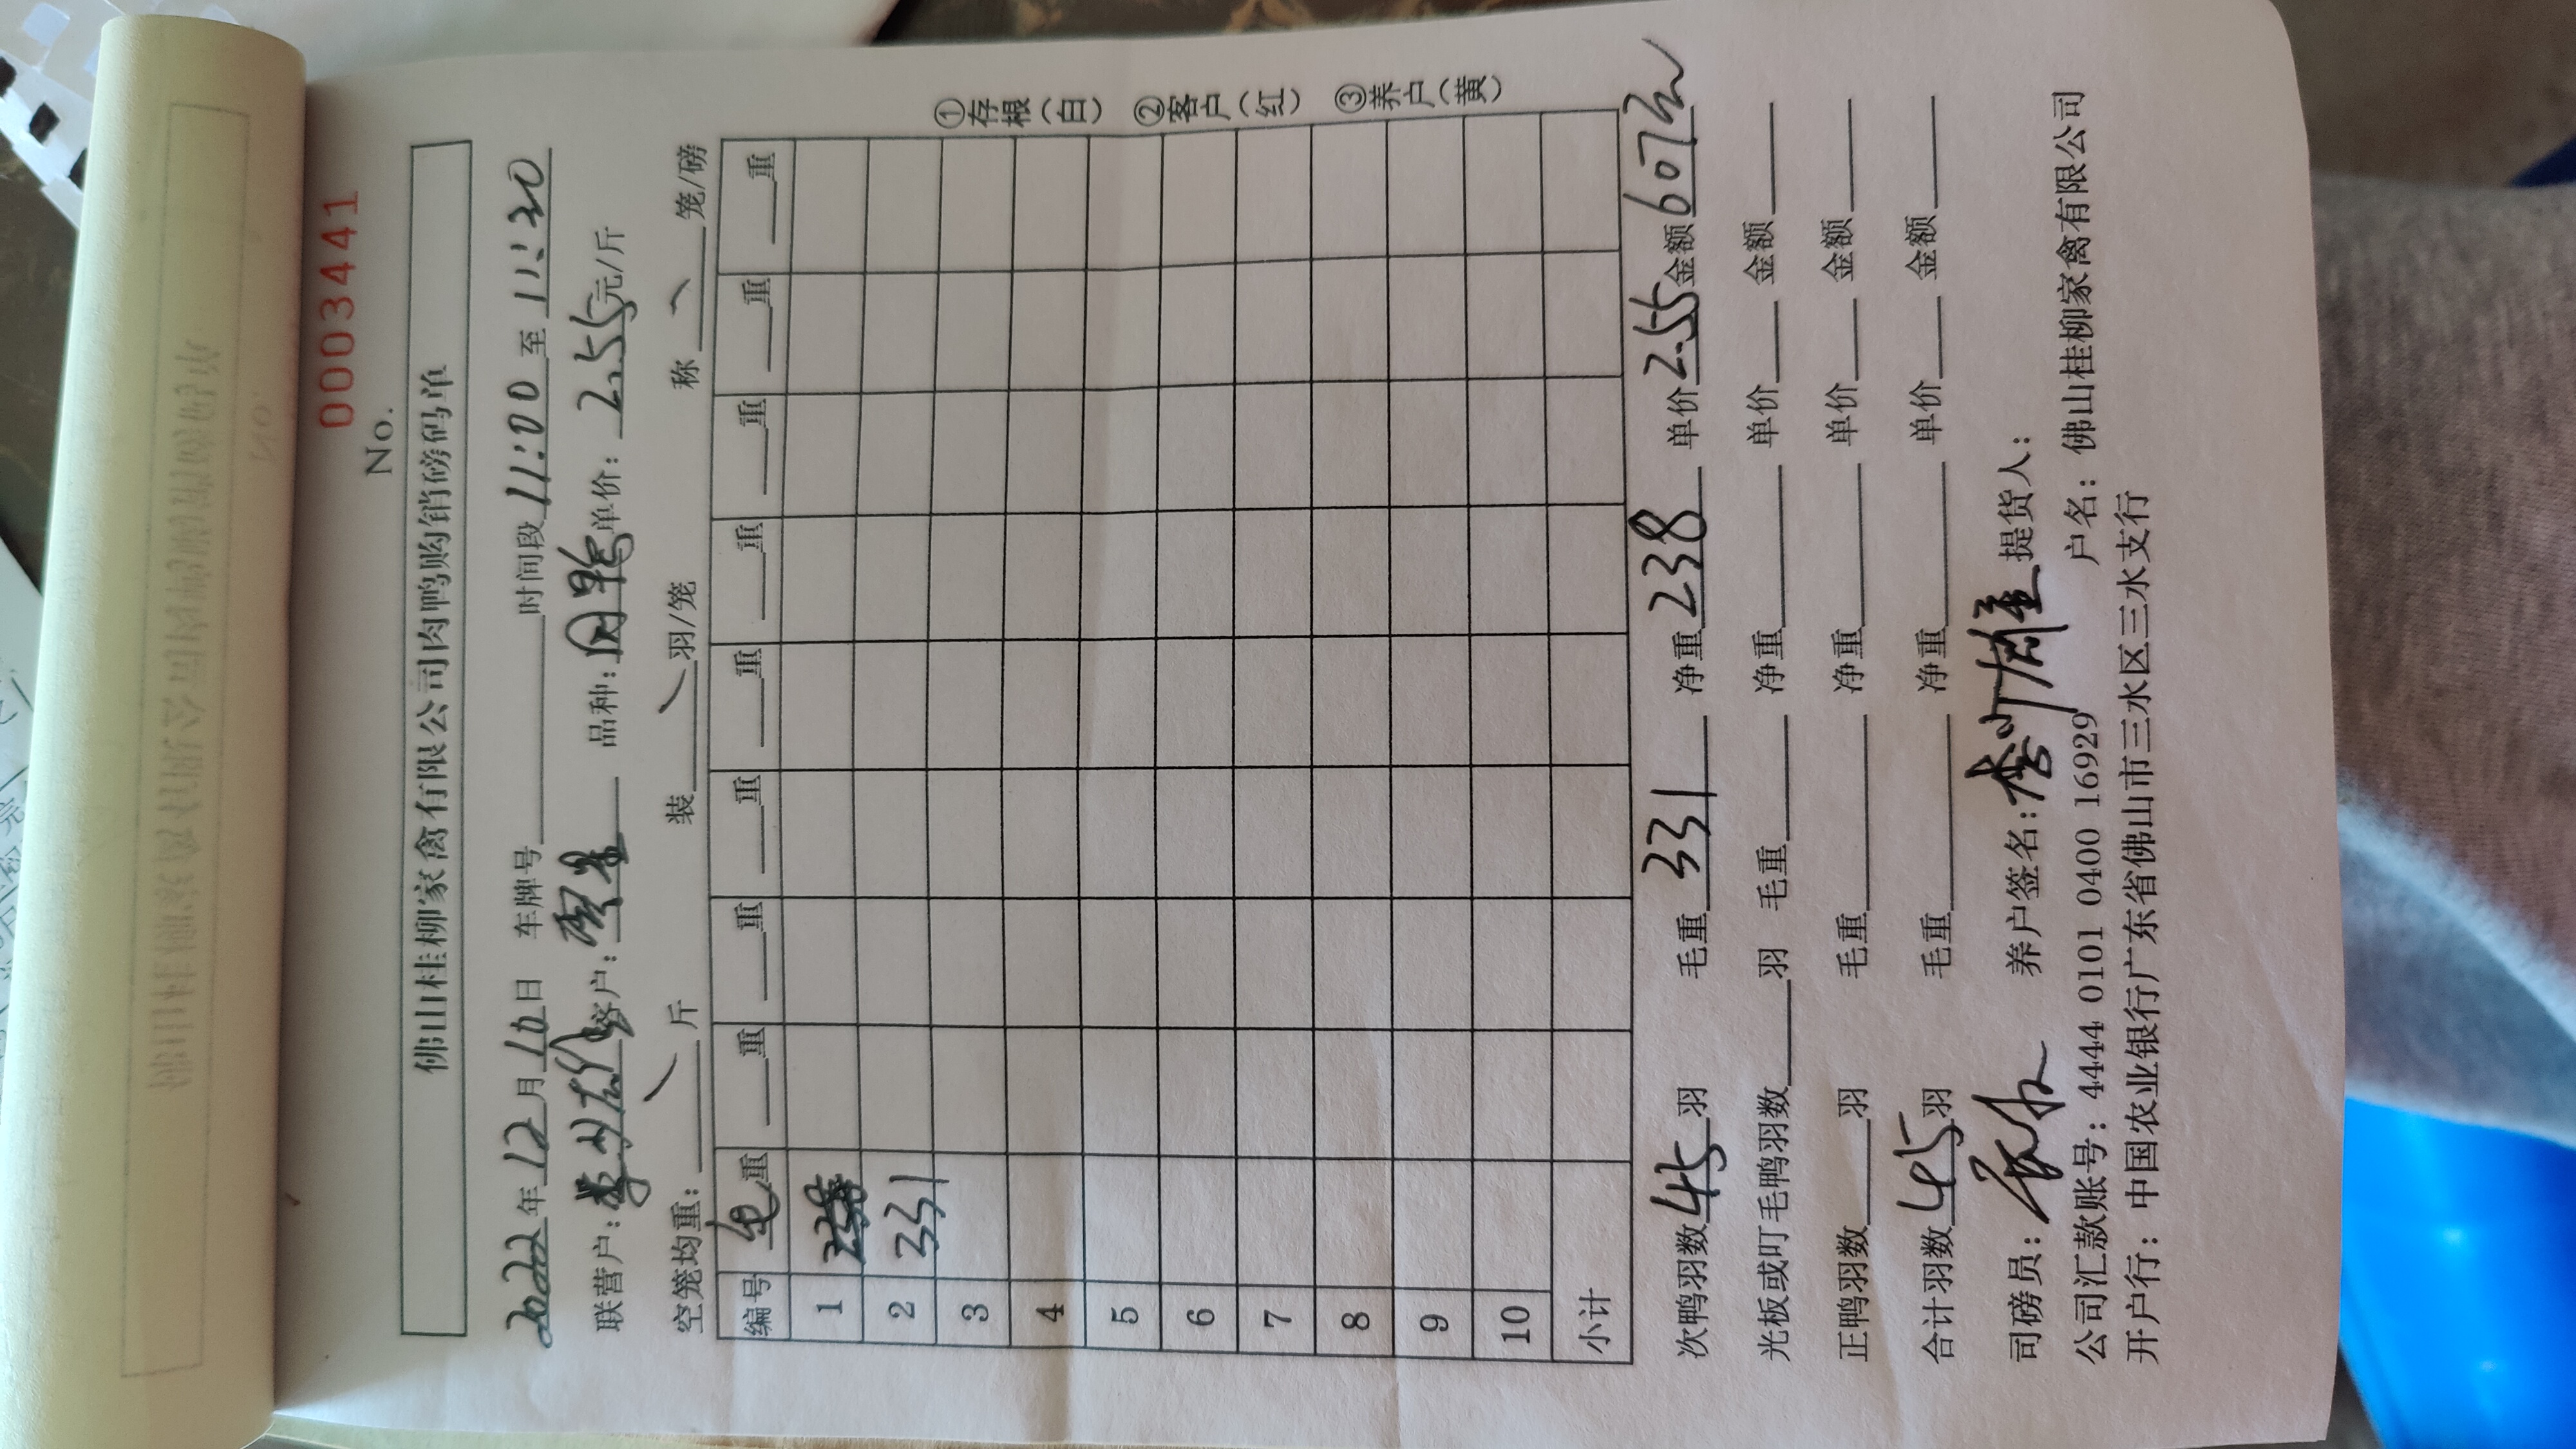 No. 0003441
佛山桂柳家禽有限公司肉鸭购销磅码单
2022年12月10日 车牌号 时间段11:00至11:30
联营户: 客户: 品种: 单价:2.55元/斤
空笼均重: 斤 装 羽/笼 称 笼/磅
编号 毛重 重 重 重 重 重 重 重 重
1
2 331
3
4
5
6
7
8
9
10
小计
①存根(白) ②客户(红) ③养户(黄)
次鸭羽数45羽 毛重331 净重238 单价2.55金额607元
光板或叮毛鸭羽数 羽 毛重 净重 单价 金额
正鸭羽数 羽 毛重 净重 单价 金额
合计羽数45羽 毛重 净重 单价 金额
司磅员: 养户签名: 提货人:
公司汇款账号: 4444 0101 0400 16929 户名: 佛山桂柳家禽有限公司
开户行: 中国农业银行广东省佛山市三水区三水支行